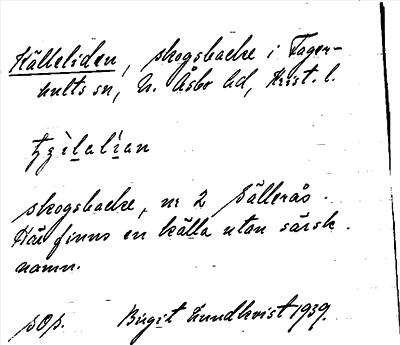 Källeliden, skogsbacke i Fager-
hults sn, N. Åsbo hd, Krist. l.
skogsbacke, nr 2 Sällerås.
Här finns en källa utan särsk.
namn.
sop. Birgit Lundkvist 1939.